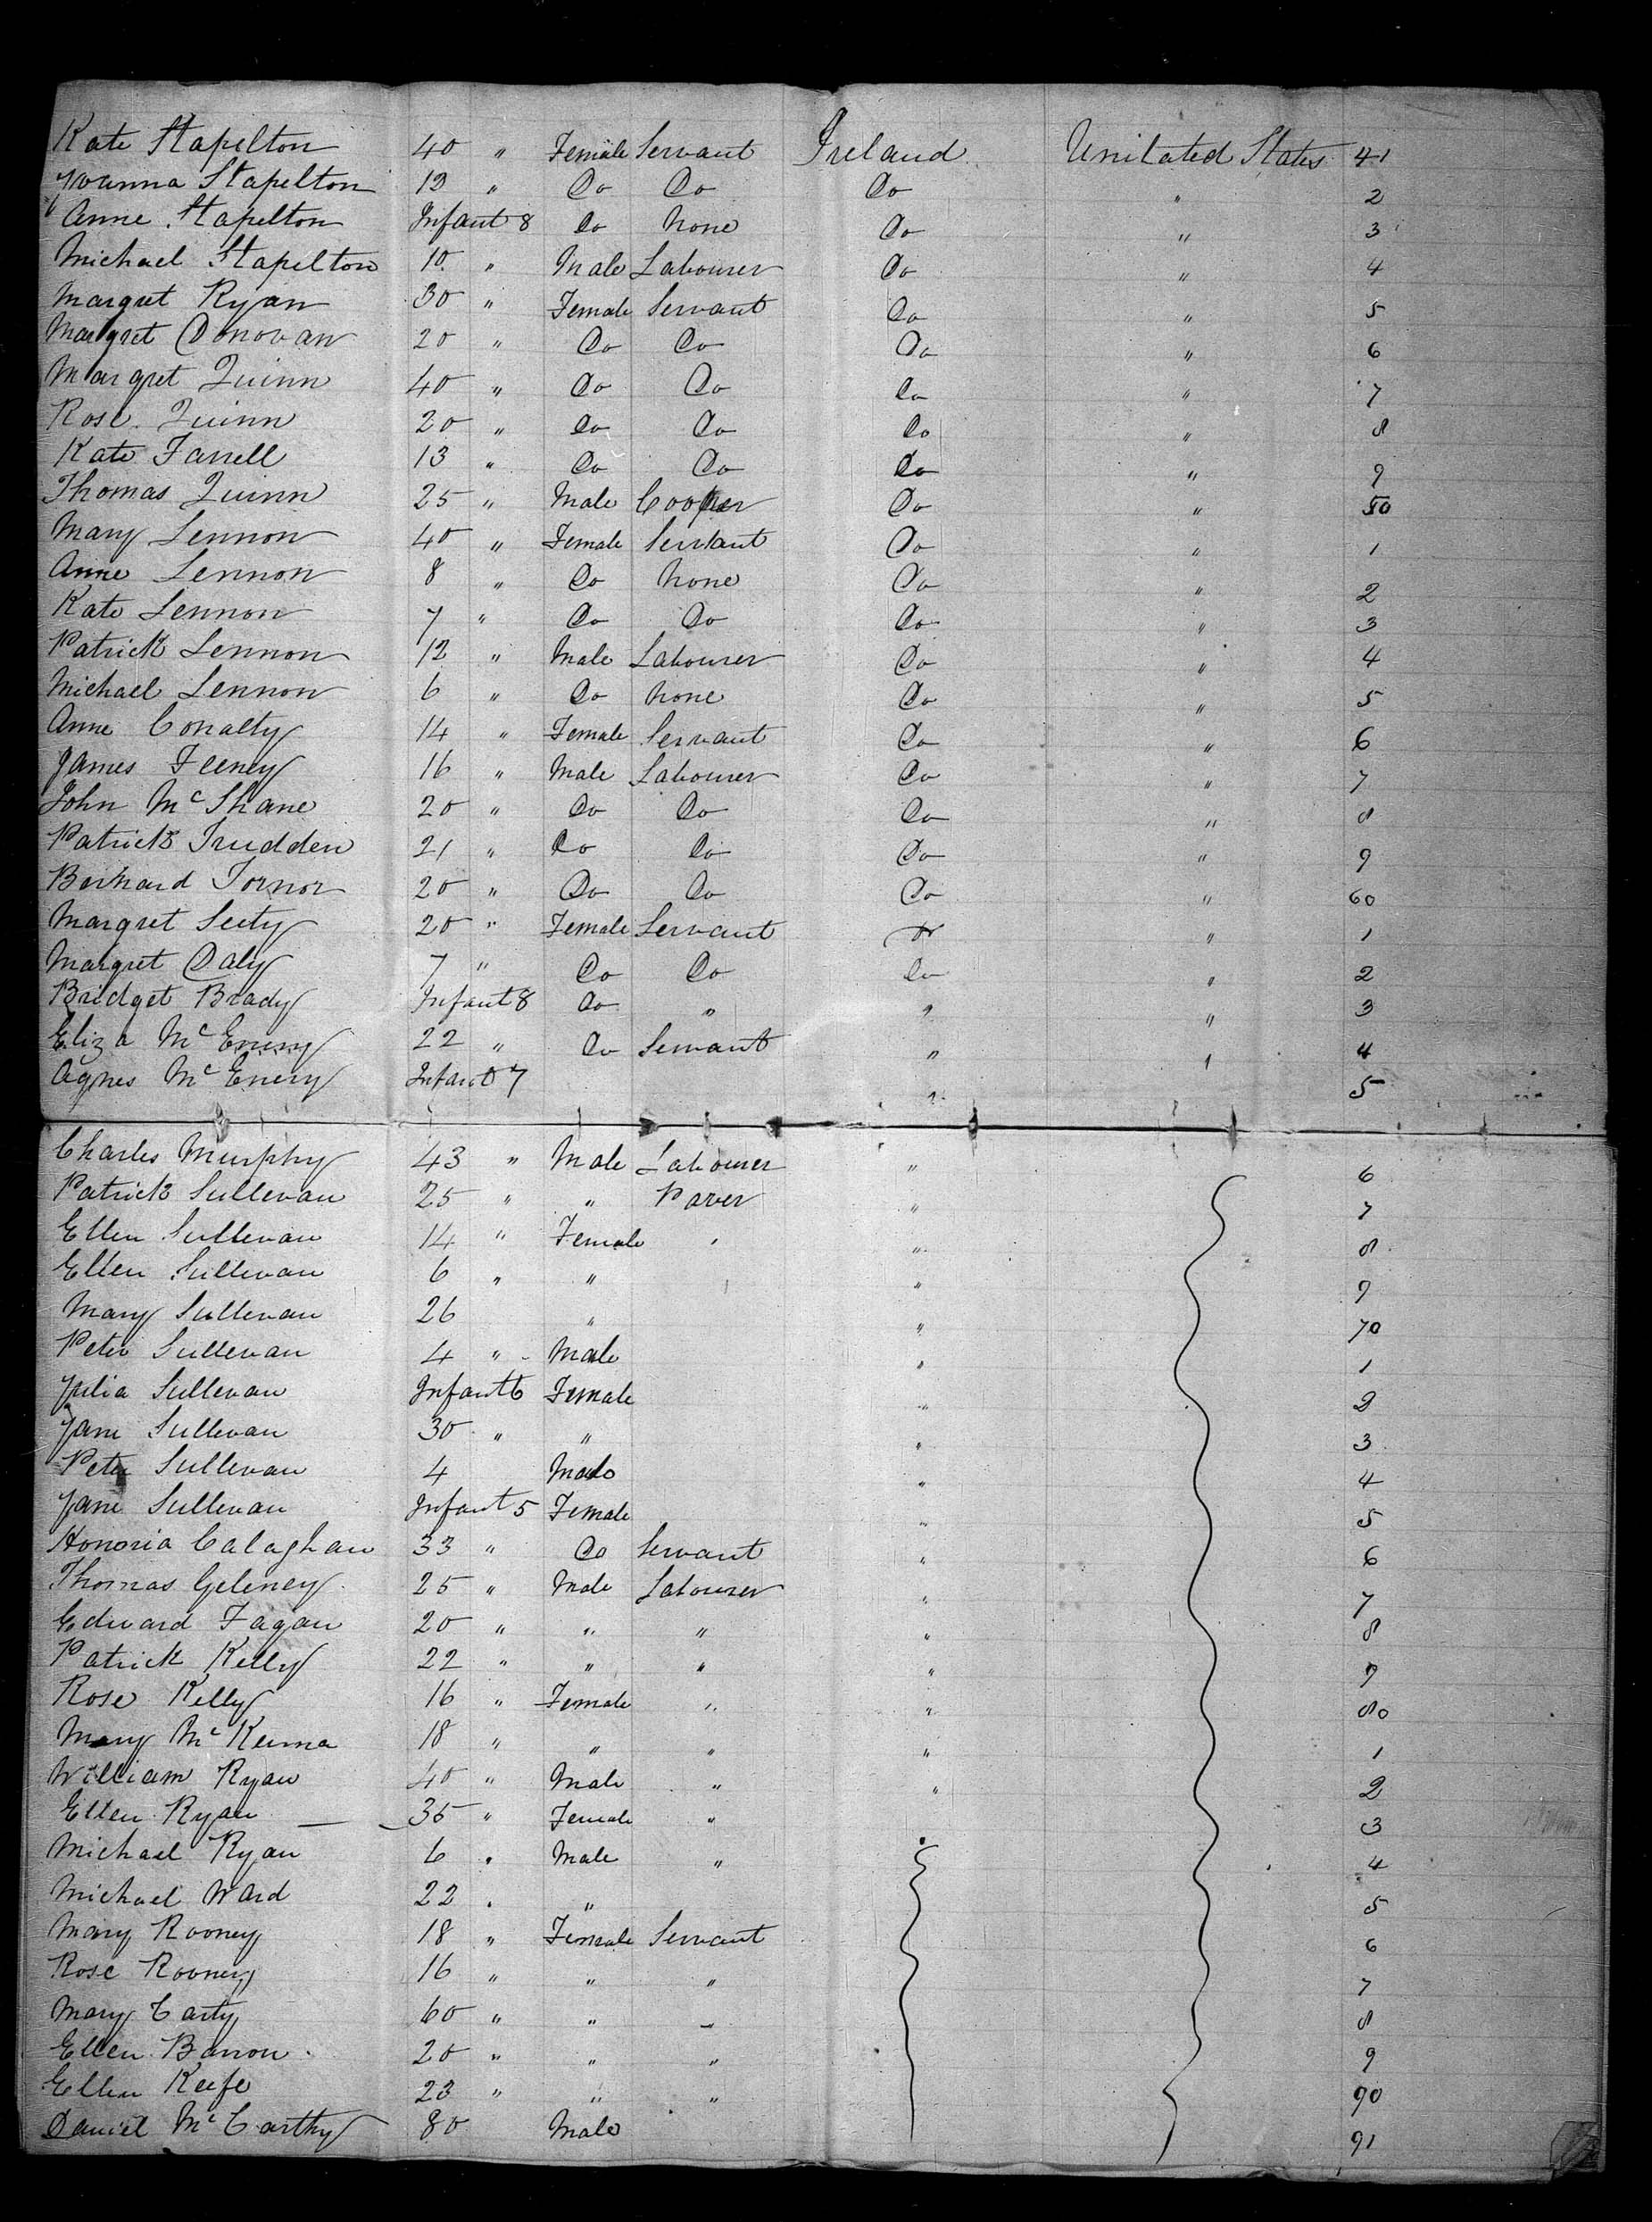 Kate Stapelton 40 " Female Servant Ireland Unitated States 41
Joanna Stapelton 13 " Do Do Do " 2
Anne Stapelton Infant 8 Do None Do " 3
Michael Stapelton 10 " Male Labourer Do " 4
Margret Ryan 30 " Female Servant Do " 5
Margret Donovan 20 " Do Do Do " 6
Margret Quinn 40 " Do Do Do " 7
Rose Quinn 20 " Do Do Do " 8
Kate Farrell 13 " Do Do Do " 9
Thomas Quinn 25 " Male Cooper Do " 50
Mary Lennon 40 " Female Servant Do " 1
Anne Lennon 8 " Do None Do " 2
Kate Lennon 7 " Do Do Do " 3
Patrick Lennon 12 " Male Labourer Do " 4
Michael Lennon 6 " Do None Do " 5
Anne Conalty 14 " Female Servant Do " 6
James Feeney 16 " Male Labourer Do " 7
John McShane 20 " Do Do Do " 8
Patrick Trudden 21 " Do Do Do " 9
Bernard Tornor 20 " Do Do Do " 60
Margret 20 " Female Servant Do " 1
Margret Daly 7 " Do Do Do " 2
Bridget Brady Infant 8 Do " " " 3
Eliza McEneny 22 " Do Servant " " 4
Agnes McEnery Infant 7 " 5
Charles Murphy 43 " Male Labourer " 6
Patrick Sullevan 25 " " Paver " 7
Ellen Sullevan 14 " Female " " 8
Ellen Sullevan 6 " " " 9
Mary Sullevan 26 " " 70
Peter Sullevan 4 " Male " 1
Julia Sullevan Infant 6 Female " 2
Jane Sullevan 30 " " " 3
Peter Sullevan 4 Male " 4
Jane Sullevan Infant 5 Female " 5
Honoria Calaghan 33 " Do Servant " 6
Thomas Geleney 25 " Male Labourer " 7
Edward Fagan 20 " " " " 8
Patrick Kelly 22 " " " " 9
Rose Kelly 16 " Female " " 80
Mary McKenna 18 " " " " 1
William Ryan 40 " Male " " 2
Ellen Ryan 35 " Female " 3
Michael Ryan 6 " Male " 4
Michael Ward 22 " " 5
Mary Rooney 18 " Female Servant 6
Rose Rooney 16 " " " 7
Mary Carty 60 " " " 8
Ellen Barron 20 " " " 9
Ellen Keefe 23 " " " 90
Daniel McCarthy 80 Male 91